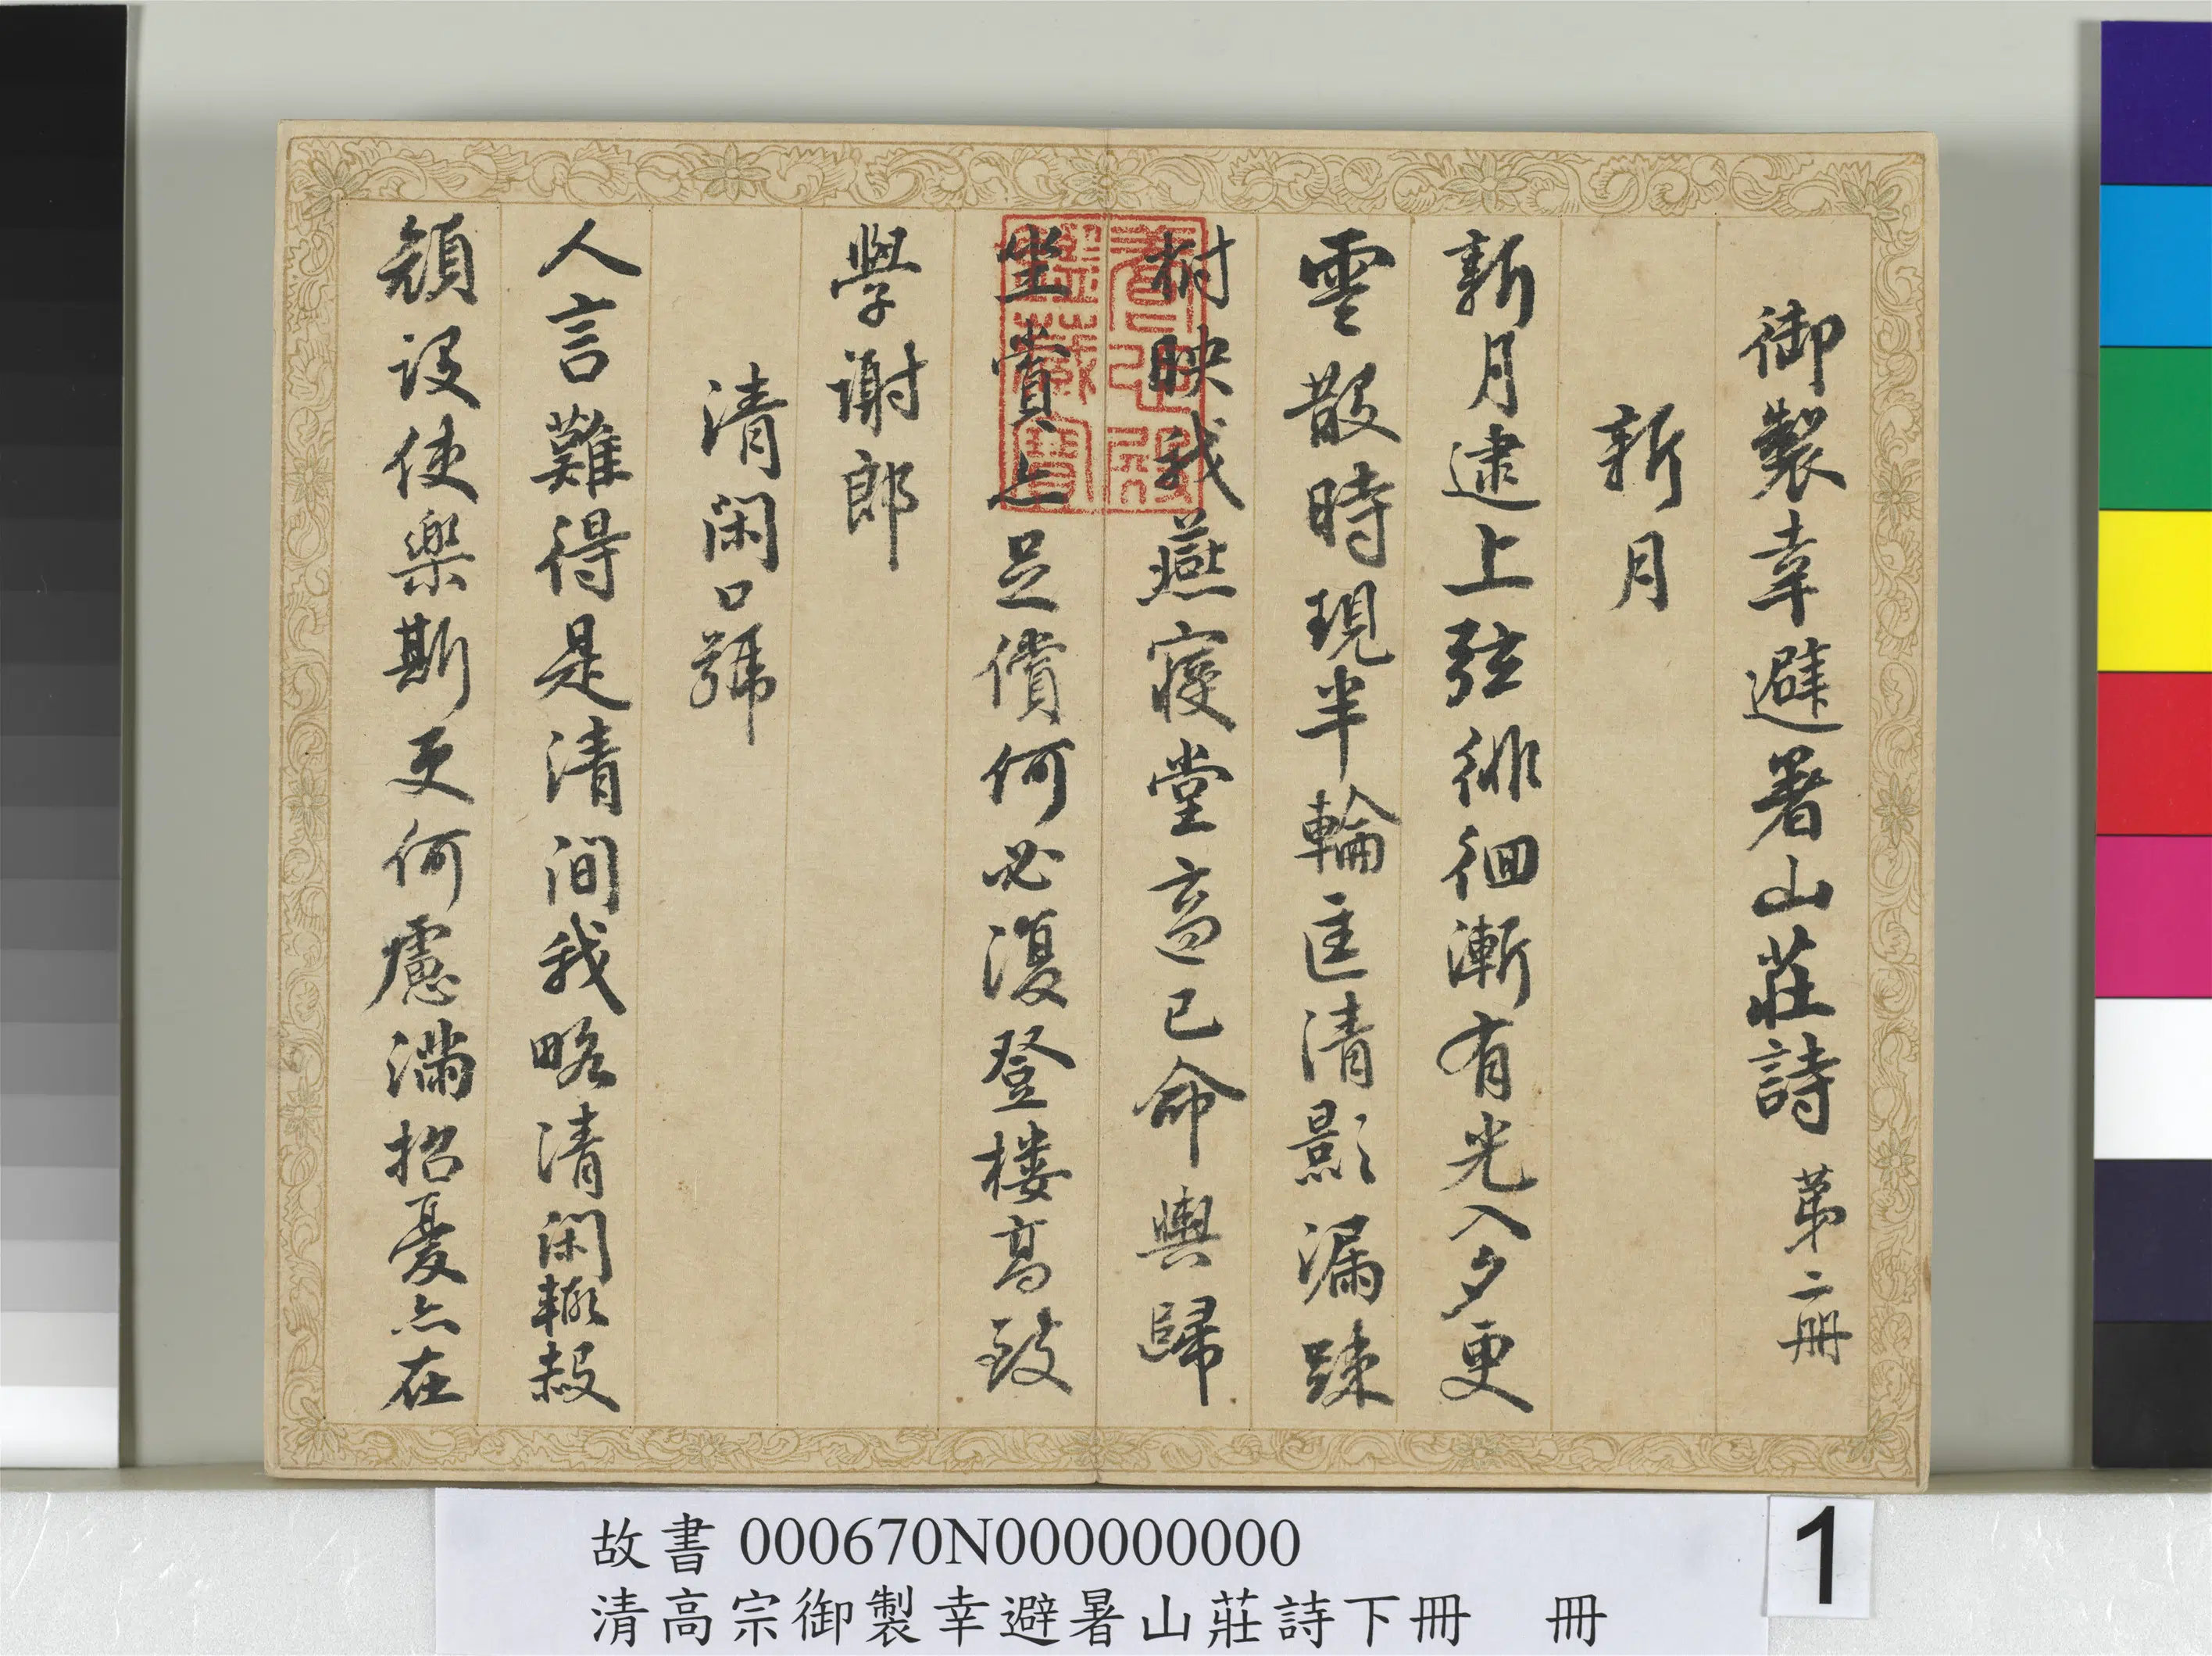 御製幸避暑山莊詩 第二册
新月
新月逮上弦徘徊漸有光入夕更
雲散時現半輪匡清影漏疎
樹映我燕寢堂高已命輿歸
坐賞亦足償何必復登樓高致
學謝郎
清閑口號
人言難得是清間我略清閑輙赧
顔設使樂斯更何慮滿招憂亦在
養心殿鑑藏寶
故書 000670N000000000
清高宗御製幸避暑山莊詩下冊 冊
1